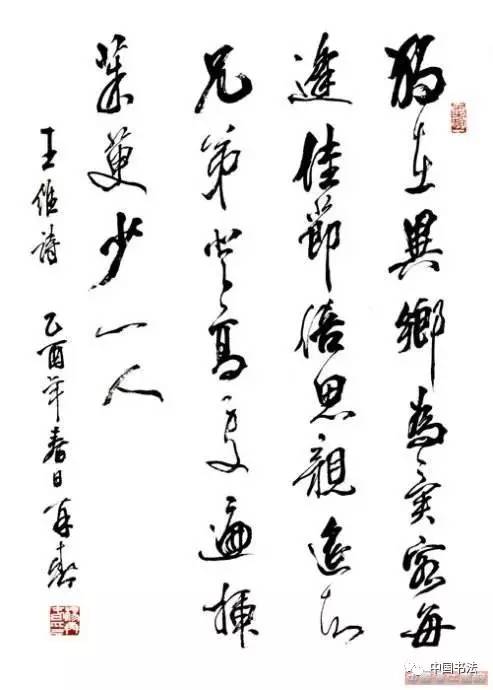 獨在異鄉為異客每
逢佳節倍思親遙知
兄弟登高處遍插
茱萸少一人
王維詩 乙酉年春日
中国书法